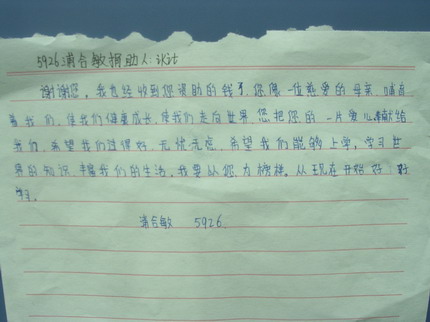 5926 浦合敏捐助人：
谢谢您，我已经收到您资助的钱了，您像一位慈爱的母亲，哺育
着我们，使我们健康成长，使我们走向世界，您把您的一片爱心献给
我们，希望我们过得好，无忧无虑，希望我们能够上学，学习世
界的知识，丰富我们的生活，我要以您为榜样。从现在开始好好
学习。
浦合敏 5926